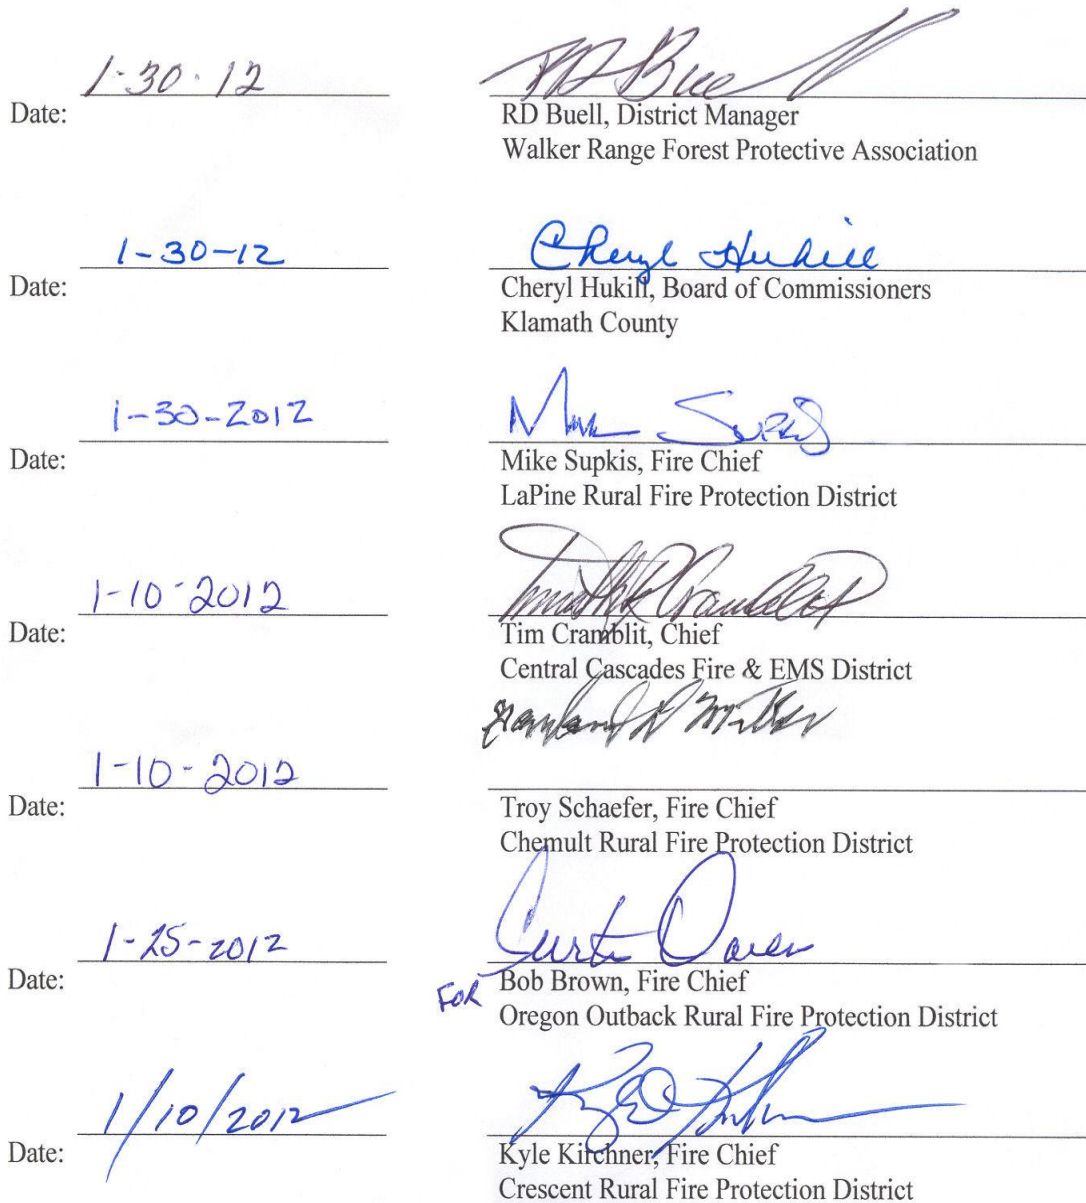 1-30-12 RD Buell
Date:
RD Buell, District Manager
Walker Range Forest Protective Association
1-30-12 Cheryl Hukill
Date:
Cheryl Hukill, Board of Commissioners
Klamath County
1-30-2012 Mike Supkis
Date:
Mike Supkis, Fire Chief
LaPine Rural Fire Protection District
1-10-2012
Date:
Tim Cramblit, Chief
Central Cascades Fire & EMS District
1-10-2012
Date:
Troy Schaefer, Fire Chief
Chemult Rural Fire Protection District
1-25-2012 Curtis Owen
Date:
FOR Bob Brown, Fire Chief
Oregon Outback Rural Fire Protection District
1/10/2012
Date:
Kyle Kirchner, Fire Chief
Crescent Rural Fire Protection District